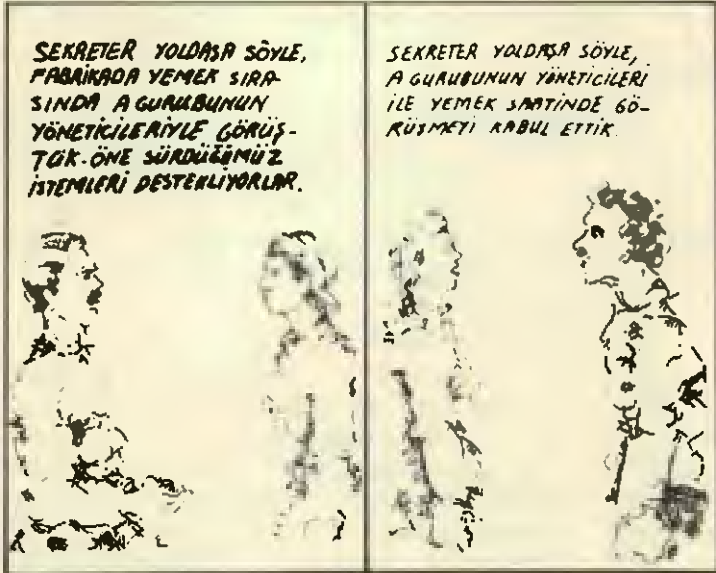 SEKRETER YOLDAŞA SÖYLE,
FABRİKADA YEMEK SIRA-
SINDA A GURUBUNUN
YÖNETİCİLERİYLE GÖRÜŞ-
TÜK. ÖNE SÜRDÜĞÜMÜZ
İSTEMLERİ DESTEKLİYORLAR.
SEKRETER YOLDAŞA SÖYLE,
A GURUBUNUN YÖNETİCİLERİ
İLE YEMEK SAATİNDE GÖ-
RÜŞMEYİ KABUL ETTİK.